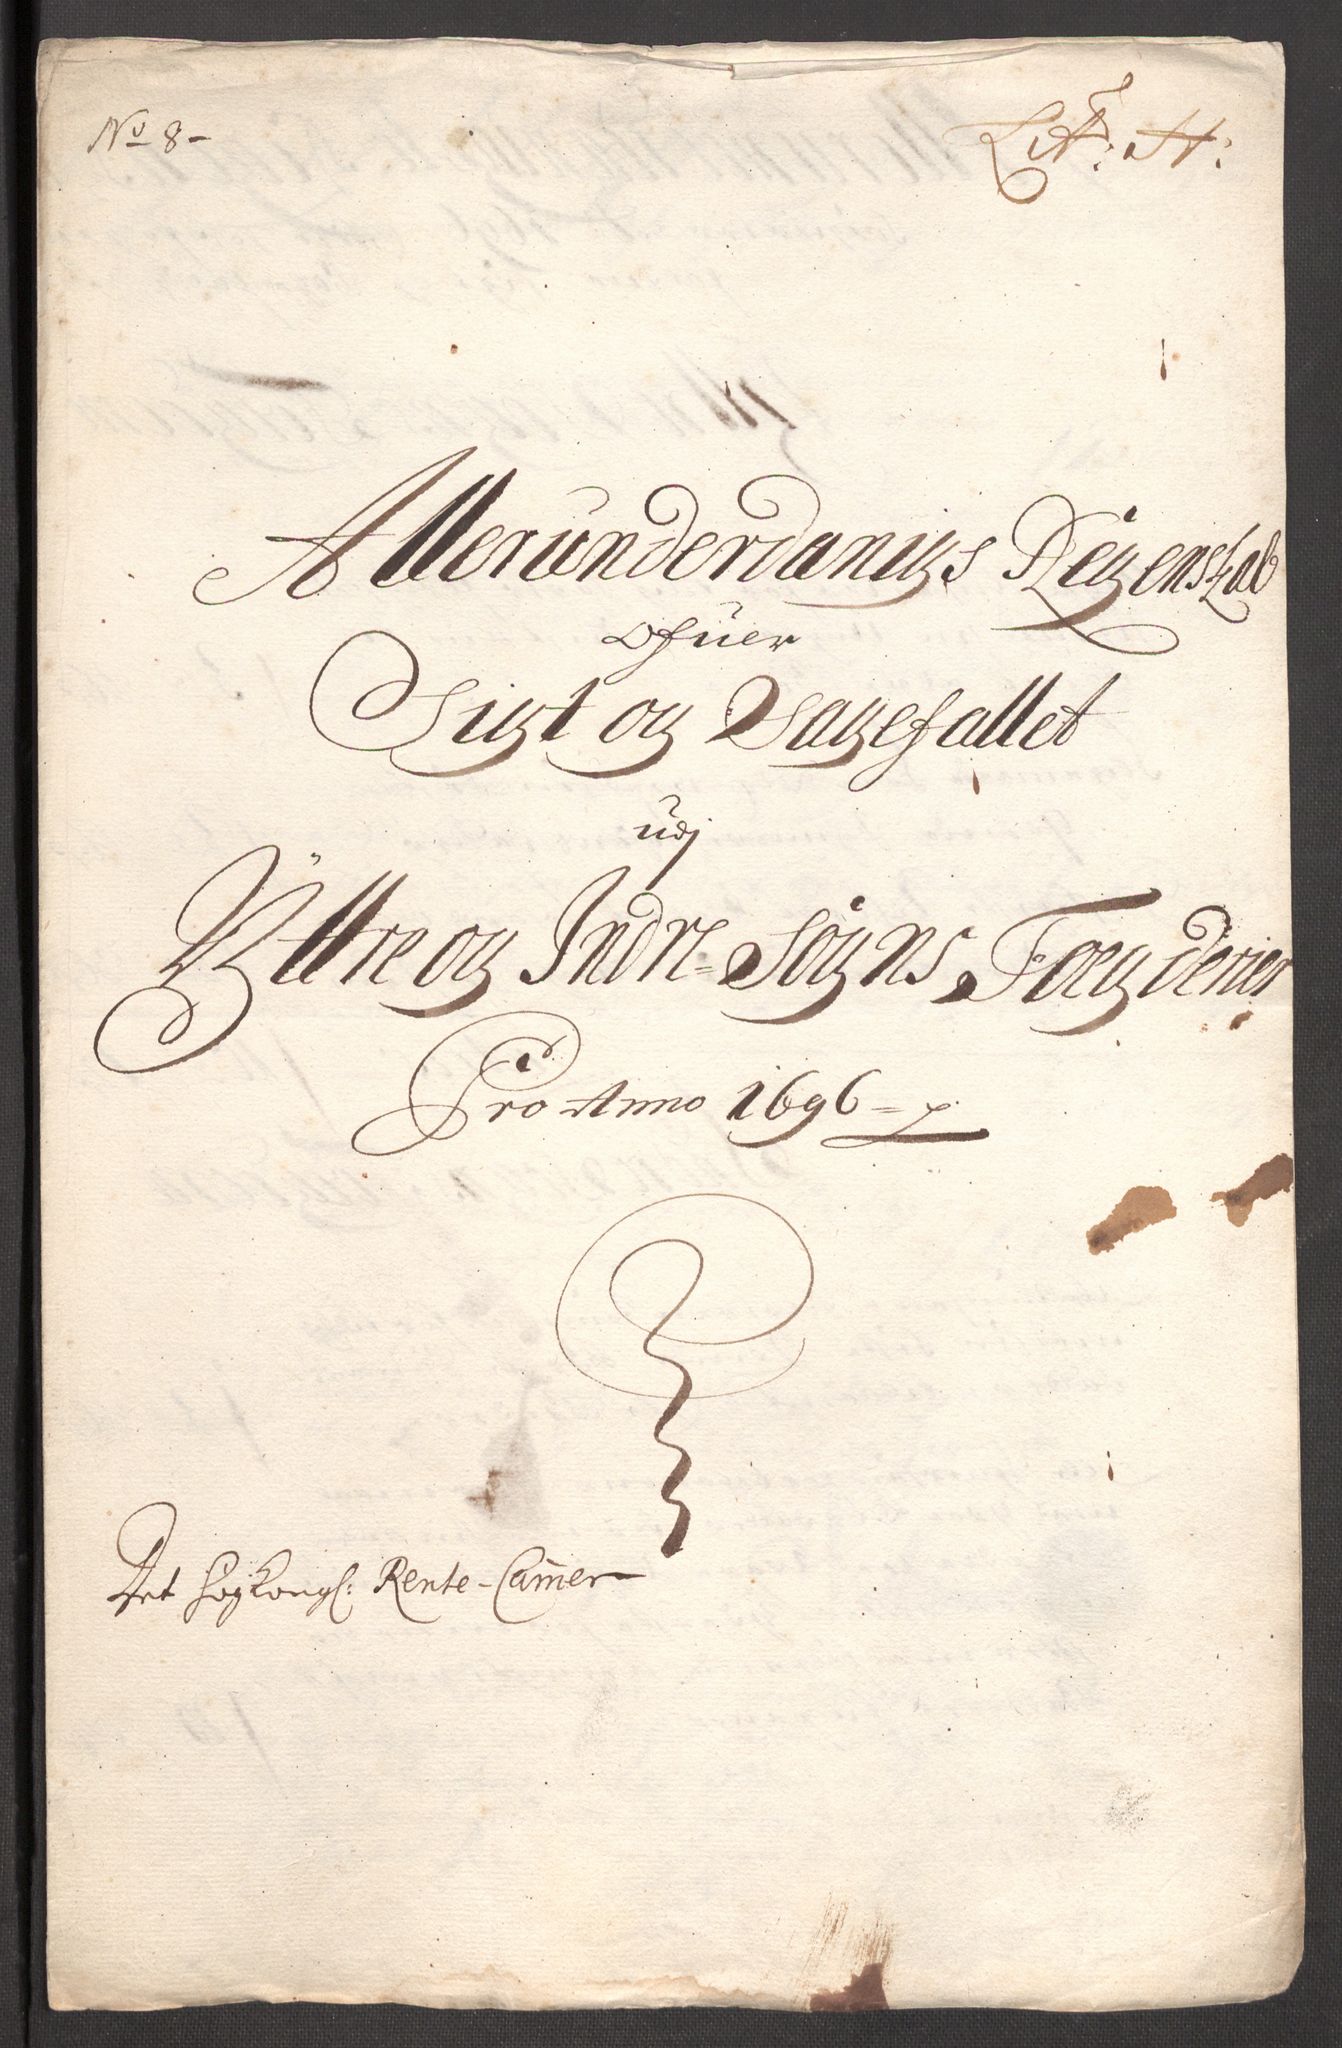 No 8-
Litr: H:
Allerunderdanigs Regenskab
ofuer
Sigt og Sagefallet
udj
Yttre og Indre= Sogns Foegderier
Pro Anno 1696 =
Det høykongl: Rente-Camer